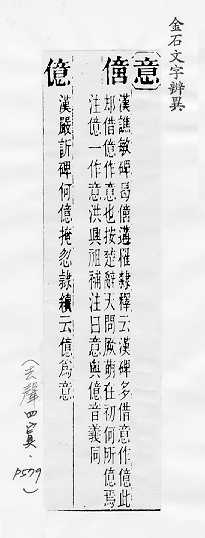 金石文字辨異
意
漢譙敏碑曷億遘罹隸釋云漢碑多借意作億此
却借億作意也按楚辭天問厥萌在初何所億焉
注億一作意洪興祖補注曰意與億音義同
億
漢嚴訢碑何億掩忽隸續云億為意
(去聲四寘·P579)